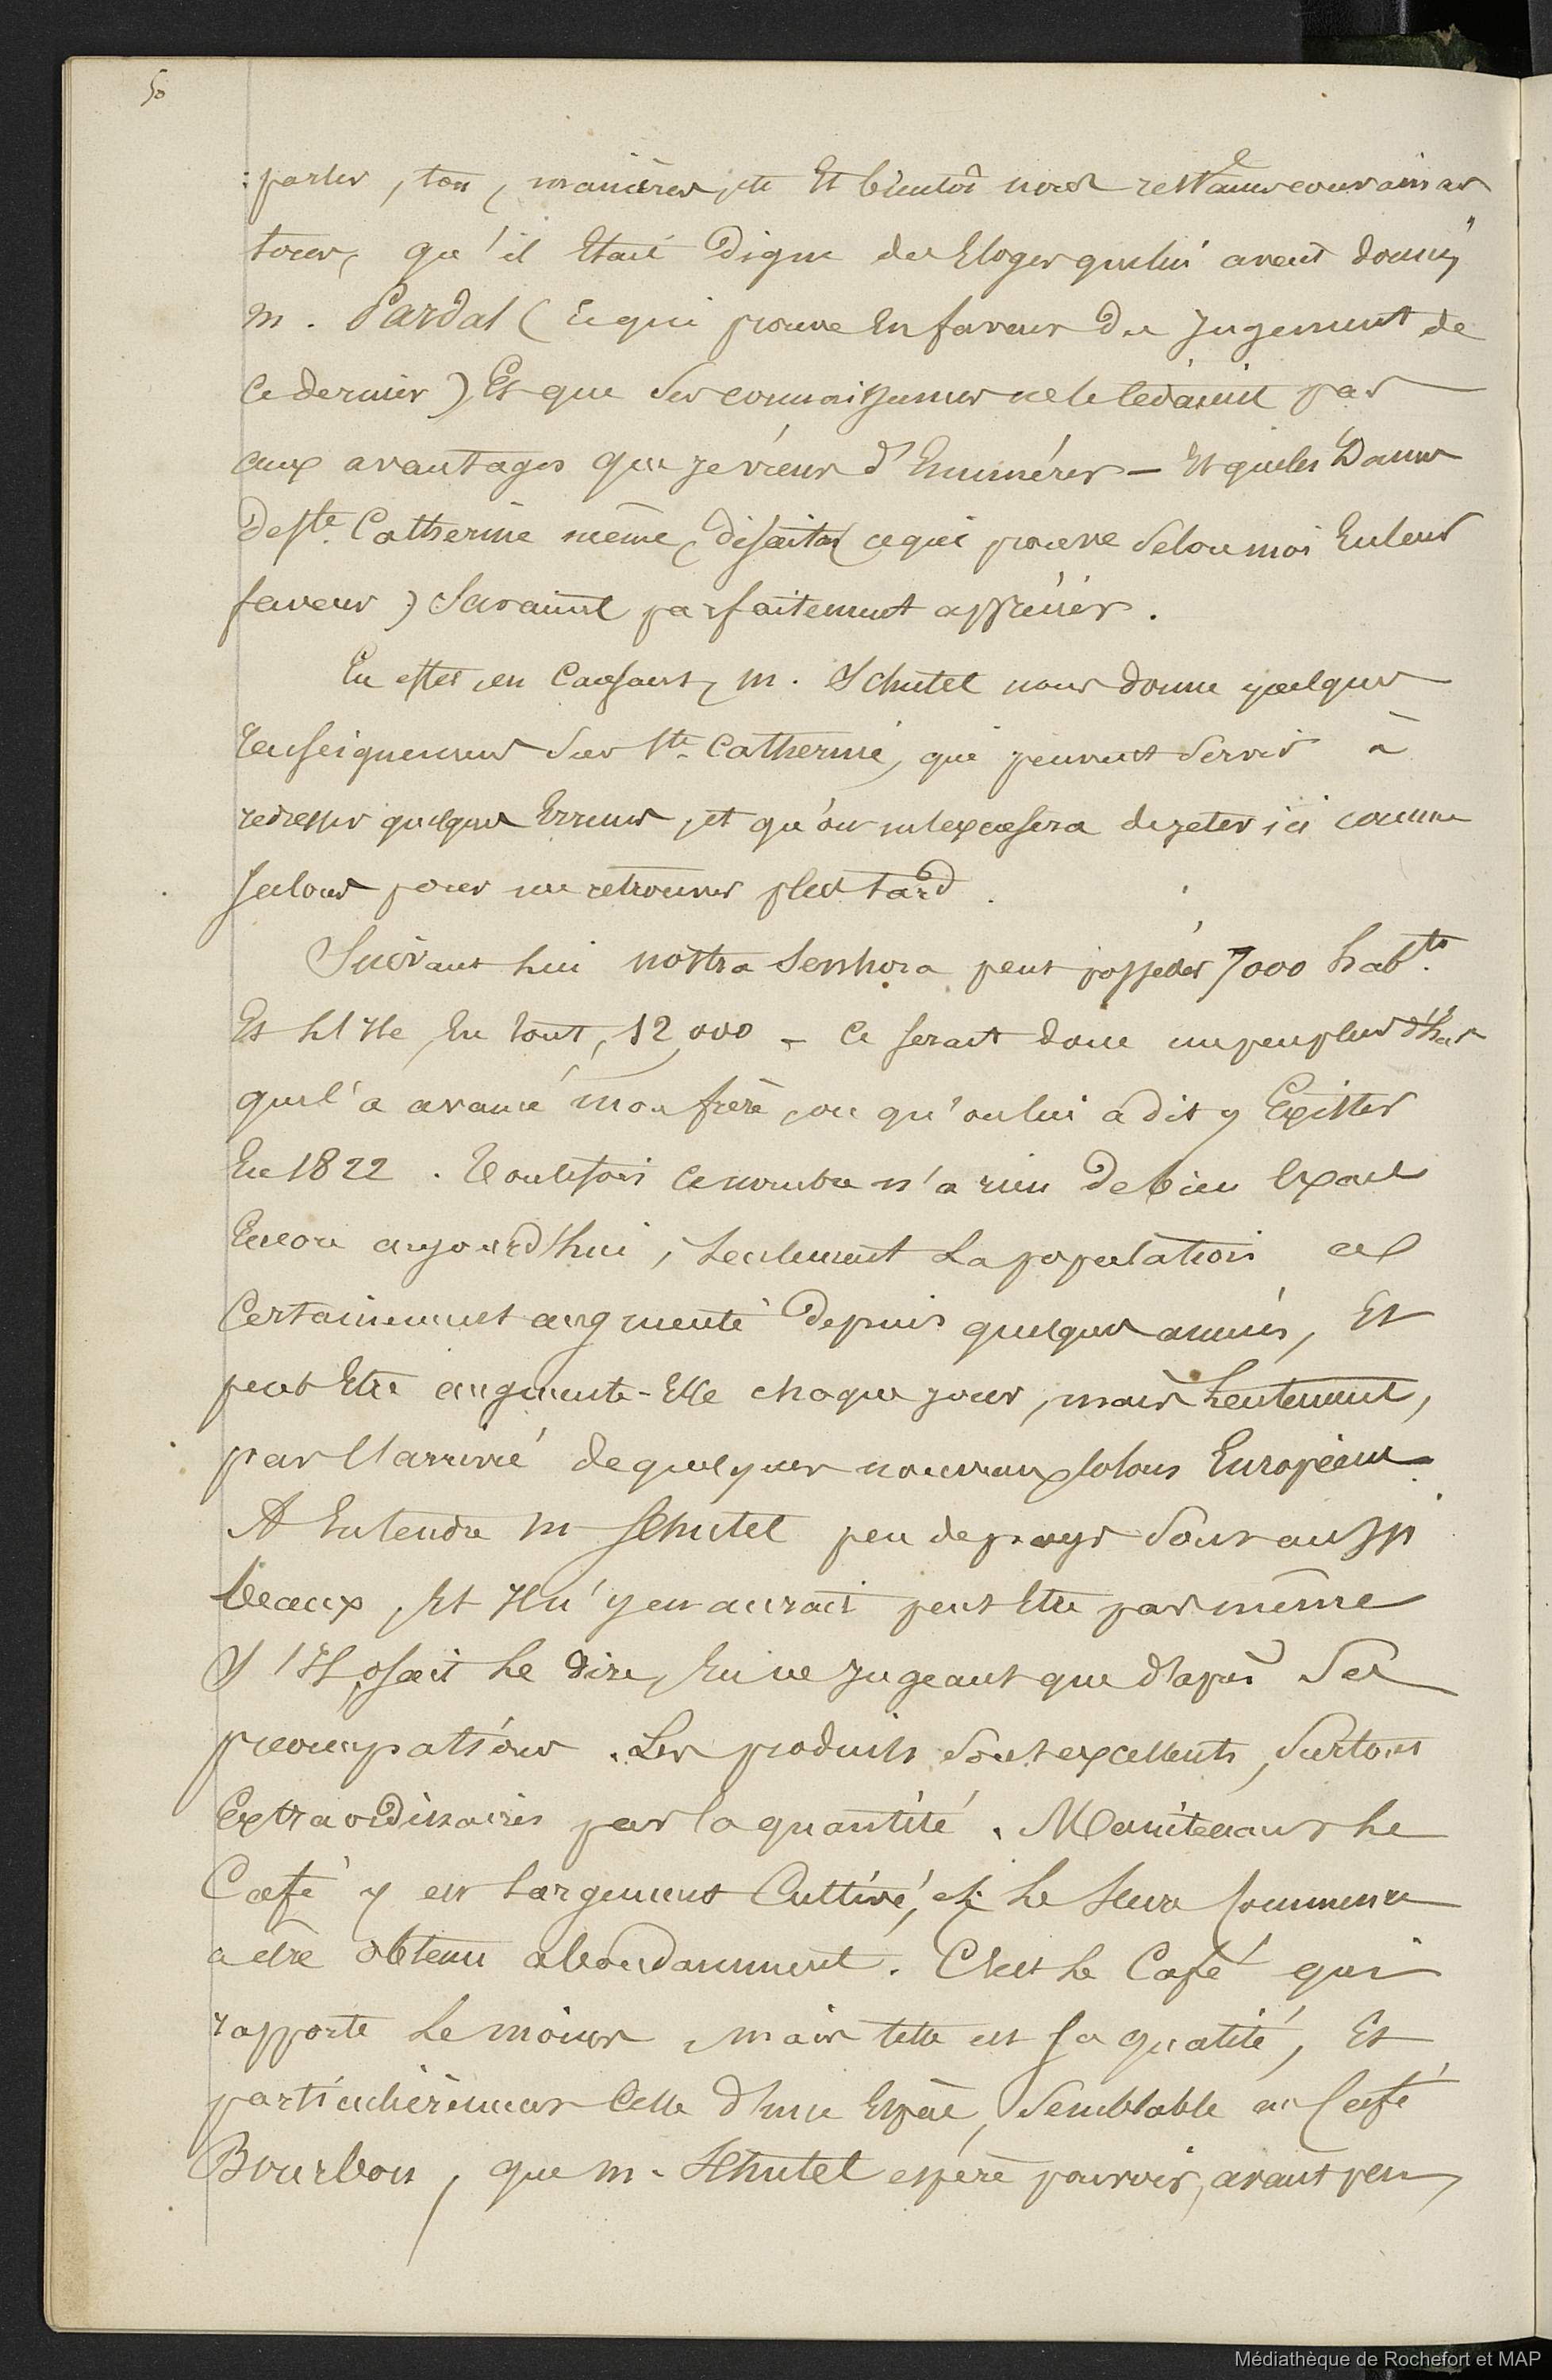 50
:parler, ton, manières, etc Et bientôt nous restames convaincus
tous, qu'il Etait Digne des Eloges que lui avait donnés
m. Pardal (ce qui prouve En faveur Du Jugement de
ce dernier) Et que Ses connaissances ne le cédaient pas
aux avantages que je viens d'Enumérer – Et que les Dames
De Ste Catherine même, disait-on (ce qui prouve Selon moi En leur
faveur) Savaient parfaitement apprécier.
En effet, en Causant, m. Schutel nous donne quelques
renseignemens Sur Ste Catherine, qui peuvent Servir à
redresser quelques Erreurs, et qu'on m'excusera de jeter ici comme
Jalons pour me retrouver plus tard.
Suivant lui nostra Senhora peut posséder 7000 habts.
Et l'Ile, En tout, 12,000 – Ce serait donc un peu plus d'has
que l'a avancé mon frère, ou qu'on lui a dit y Exister
En 1822. Toutefois ce nombre n'a rien De bien Exact
Encore aujourd'hui, Seulement La population a
Certainement augmenté Depuis quelques années, Et
peut Etre augmente-Elle chaque jour, mais Lentement,
par l'arrivée de quelques nouveaux Colons Européens.
A Entendre m Schutel peu de pays Sont aussi
beaux, Et Il n'y en aurait peut Etre pas même
S'Il osait Le Dire, En ne jugeant que d'après Ses
préoccupations. Les produits Sont excellents, Surtout
Extraordinaires par la quantité. Maintenant Le
Café y est Largement Cultivé, et Le Sucre Commence
a être obtenu abondamment. C'est Le Café qui
rapporte Le moins, mais telle est Sa qualité, Et
particulièrement Celle d'une Espèce, Semblable au Café
Bourbon, que m. Schutel espère pouvoir, avant peu,
Médiathèque de Rochefort et MAP